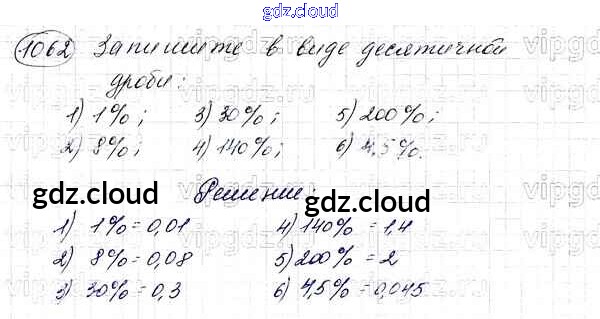 gdz.cloud
1062 Запишите в виде десятичной
дроби:
1) 1%; 3) 30%; 5) 200%;
2) 8%; 4) 140%; 6) 4,5%.
gdz.cloud gdz.cloud
Решение:
1) 1% = 0,01 4) 140% = 1,4
2) 8% = 0,08 5) 200% = 2
3) 30% = 0,3 6) 4,5% = 0,045
gdz.cloud